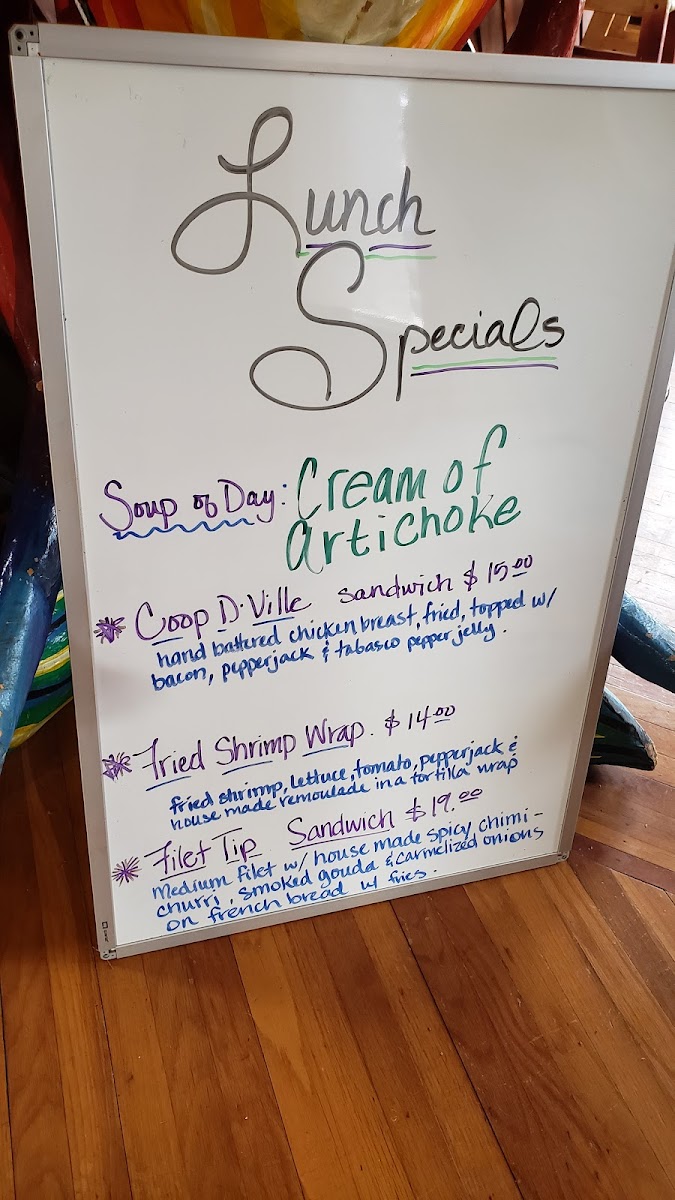 Lunch
Specials
Soup of Day: Cream of
Artichoke
* Coop D. Ville Sandwich $15.00
hand battered chicken breast, fried, topped w/
bacon, pepperjack & tabasco pepper jelly.
* Fried Shrimp Wrap. $14.00
fried shrimp, lettuce, tomato, pepperjack &
house made remoulade in a tortilla wrap
* Filet Tip Sandwich $19.00
Medium filet w/ house made spicy chimi-
churri, smoked gouda & carmelized onions
on french bread w/ fries.